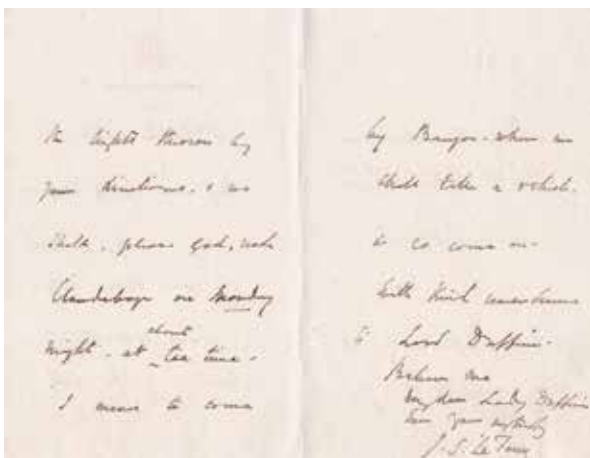 the light thrown by
your kindness. & we
shall, please God, reach
Clandeboye on Monday
night - at about tea time -
I mean to come
by Bangor - where we
shall take a vehicle
& so come on -
With kind remembrances
to Lord Dufferin -
Believe me
my dear Lady Dufferin
J. S. Le Fanu